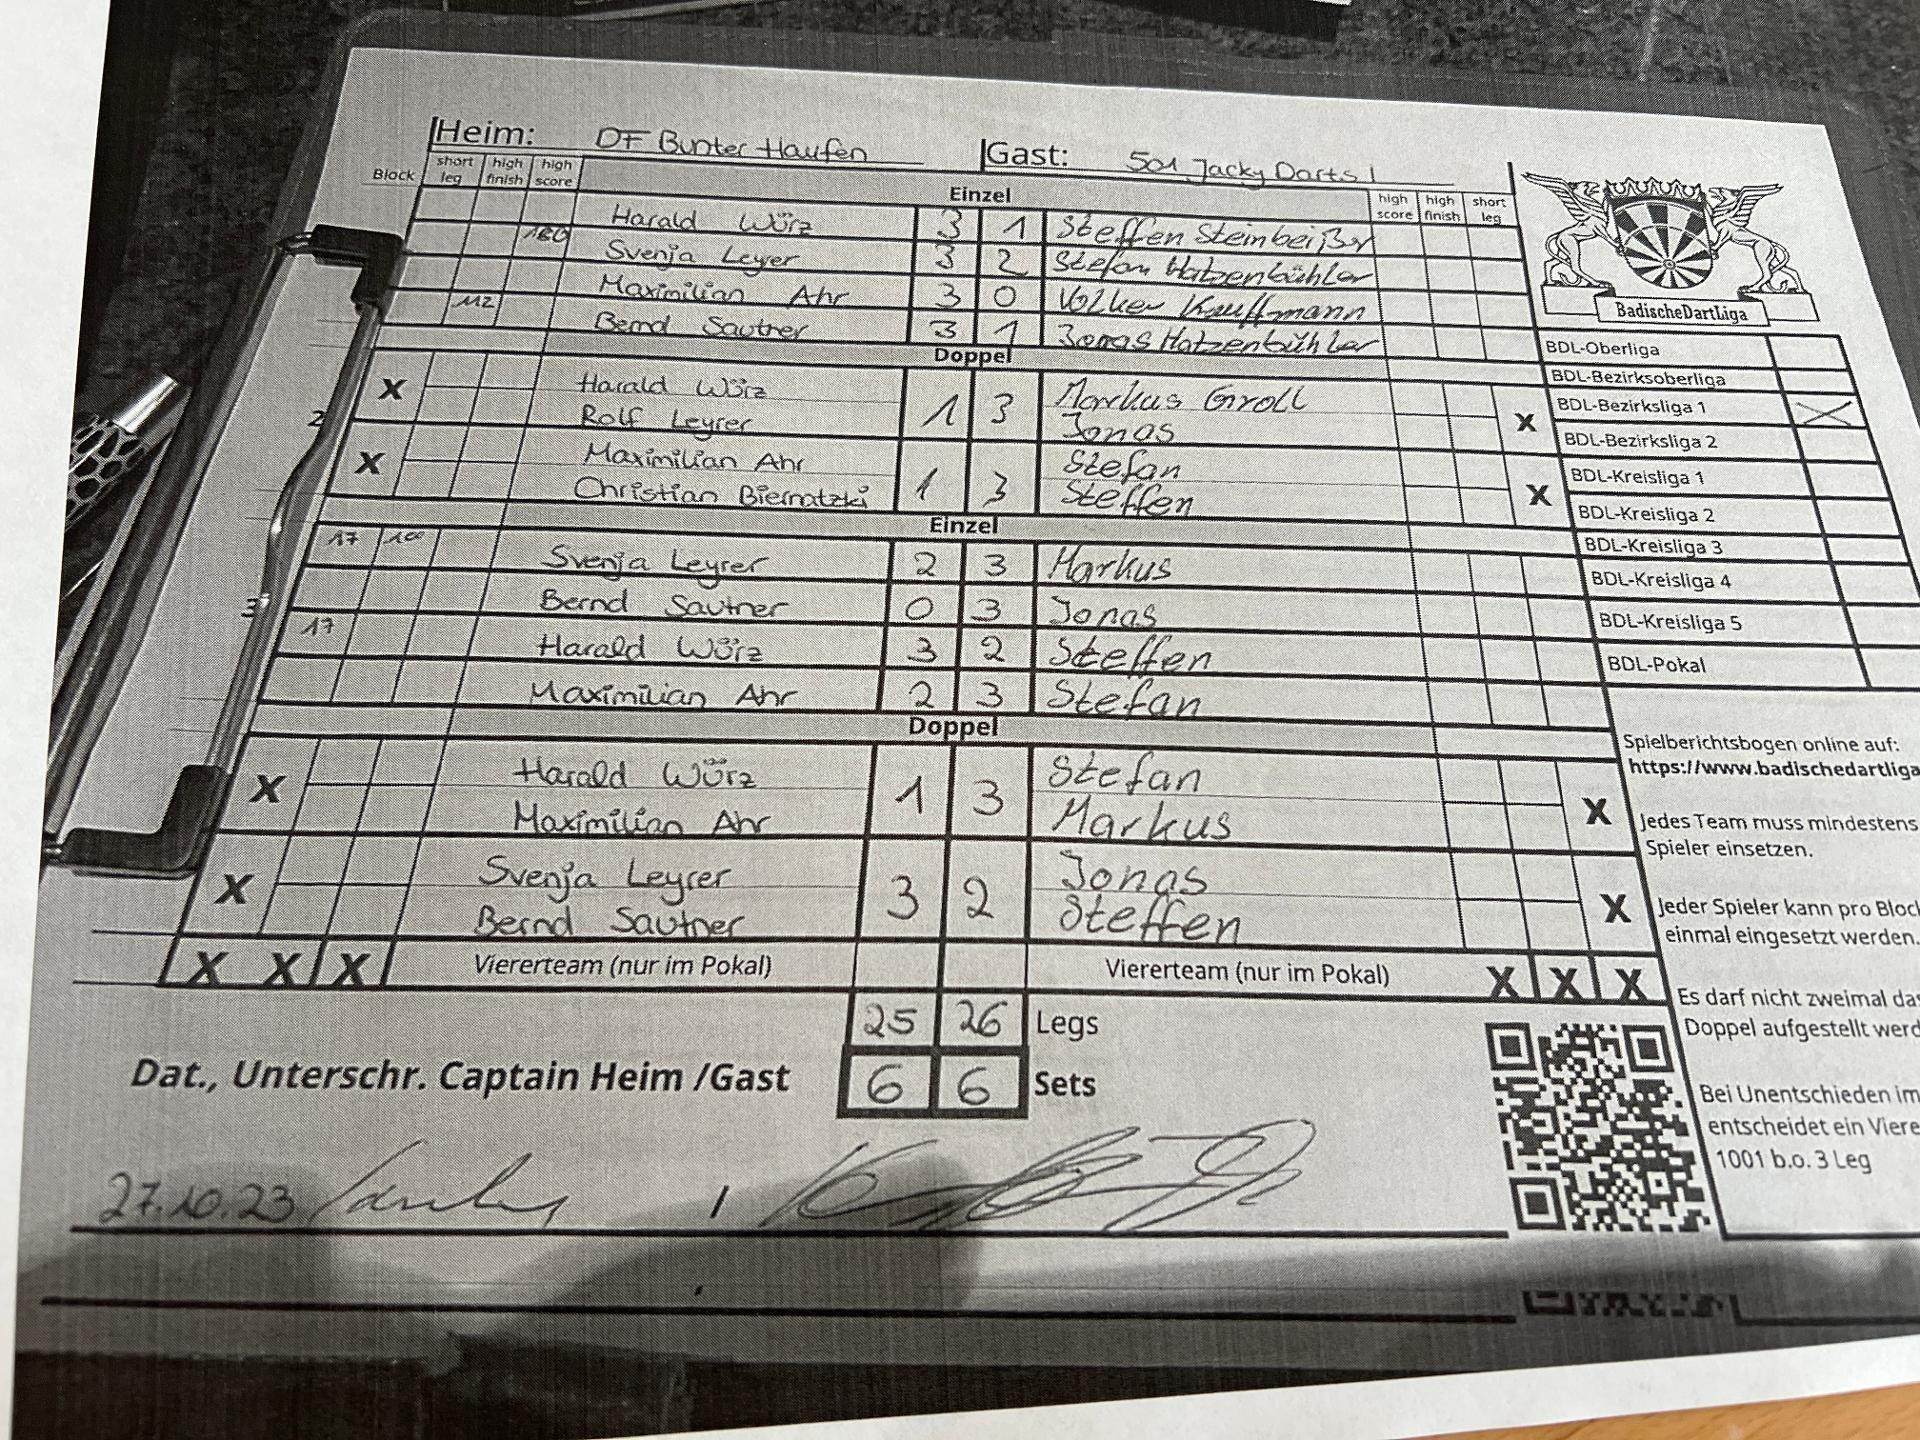 Heim: DF Bunter Haufen Gast: 501 Jacky Darts 1
Block short leg high finish high score Einzel high score high finish short leg
Harald Würz 3 1 Steffen Steinbeißer
180 Svenja Leyer 3 2 Stefan Hatzenbühler
Maximilian Ahr 3 0 Volker Kauffmann
112 Bernd Sautner 3 1 Jonas Hatzenbühler
Doppel
X Harald Würz 1 3 Markus Groll X
2 Rolf Leyrer Jonas
X Maximilian Ahr 1 3 Stefan X
Christian Biernatzki Steffen
Einzel
17 100 Svenja Leyrer 2 3 Markus
3 Bernd Sautner 0 3 Jonas
17 Harald Würz 3 2 Steffen
Maximilian Ahr 2 3 Stefan
Doppel
X Harald Würz 1 3 Stefan X
Maximilian Ahr Markus
X Svenja Leyrer 3 2 Jonas X
Bernd Sautner Steffen
X X X Viererteam (nur im Pokal) Viererteam (nur im Pokal) X X X
25 26 Legs
Dat., Unterschr. Captain Heim /Gast 6 6 Sets
27.10.23 /
BadischeDartLiga
BDL-Oberliga
BDL-Bezirksoberliga
BDL-Bezirksliga 1 X
BDL-Bezirksliga 2
BDL-Kreisliga 1
BDL-Kreisliga 2
BDL-Kreisliga 3
BDL-Kreisliga 4
BDL-Kreisliga 5
BDL-Pokal
Spielberichtsbogen online auf:
https://www.badischedartliga
Jedes Team muss mindestens
Spieler einsetzen.
Jeder Spieler kann pro Block
einmal eingesetzt werden.
Es darf nicht zweimal das
Doppel aufgestellt werd
Bei Unentschieden im
entscheidet ein Viere
1001 b.o. 3 Leg